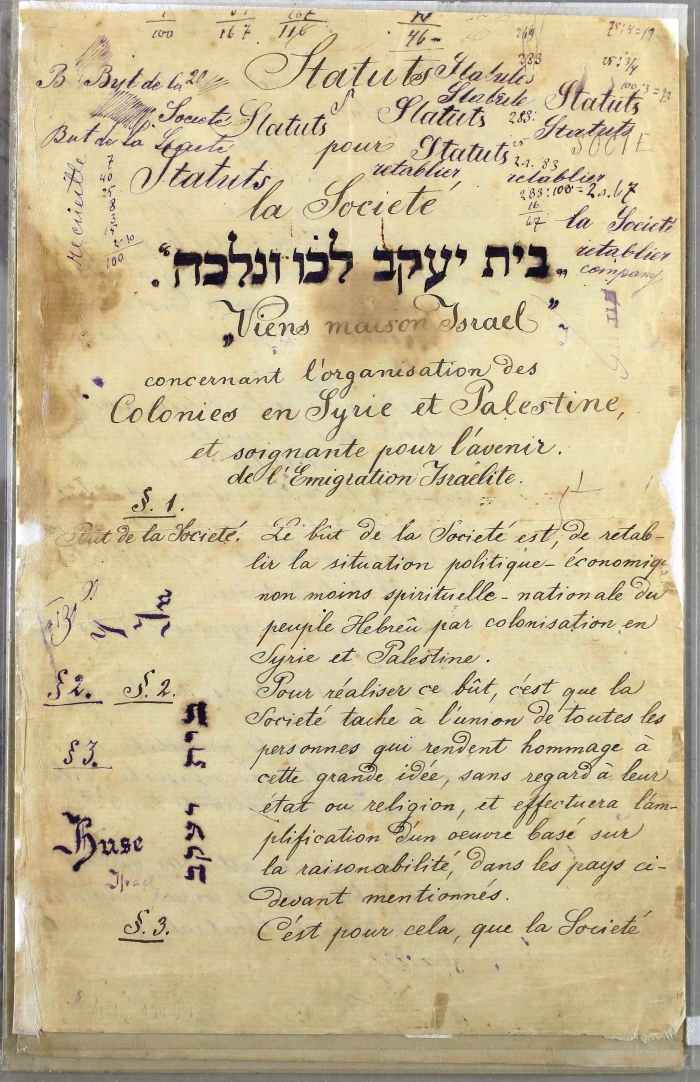 100
167
116
46-
269
283
Statuts
Statuts
Statuts
B But de la 20
Societé
Statuts
Statuts
Statuts
283:
Statuts
SOCIE
But de la Societé
pour
Statuts
retablier
retablier
Statuts
recueille
7
40
25
8
100
283:100=2.1.67
16
67
la Societé
la Societé
retablier
company
„בית יעקב לכו ונלכה“.
„Viens maison Israel”
concernant l'organisation des
Colonies en Syrie et Palestine,
et soignante pour l'avenir.
de l'Emigration Israélite.
§. 1.
But de la Societé. Le bût de la Societé est, de retab-
lir la situation politique-économiq
non moins spirituelle-nationale du
peuple Hebreû par colonisation en
Syrie et Palestine.
§2. §. 2. Pour réaliser ce bût, c'est que la
Societé tache à l'union de toutes les
§3. personnes qui rendent hommage à
cette grande idée, sans regard à leur
état ou religion, et effectuera l'am-
plification d'un oeuvre basé sur
la raisonabilité, dans les pays ci-
devant mentionnés.
בית יעקב
Huse
Israel
§. 3. C'est pour cela, que la Societé